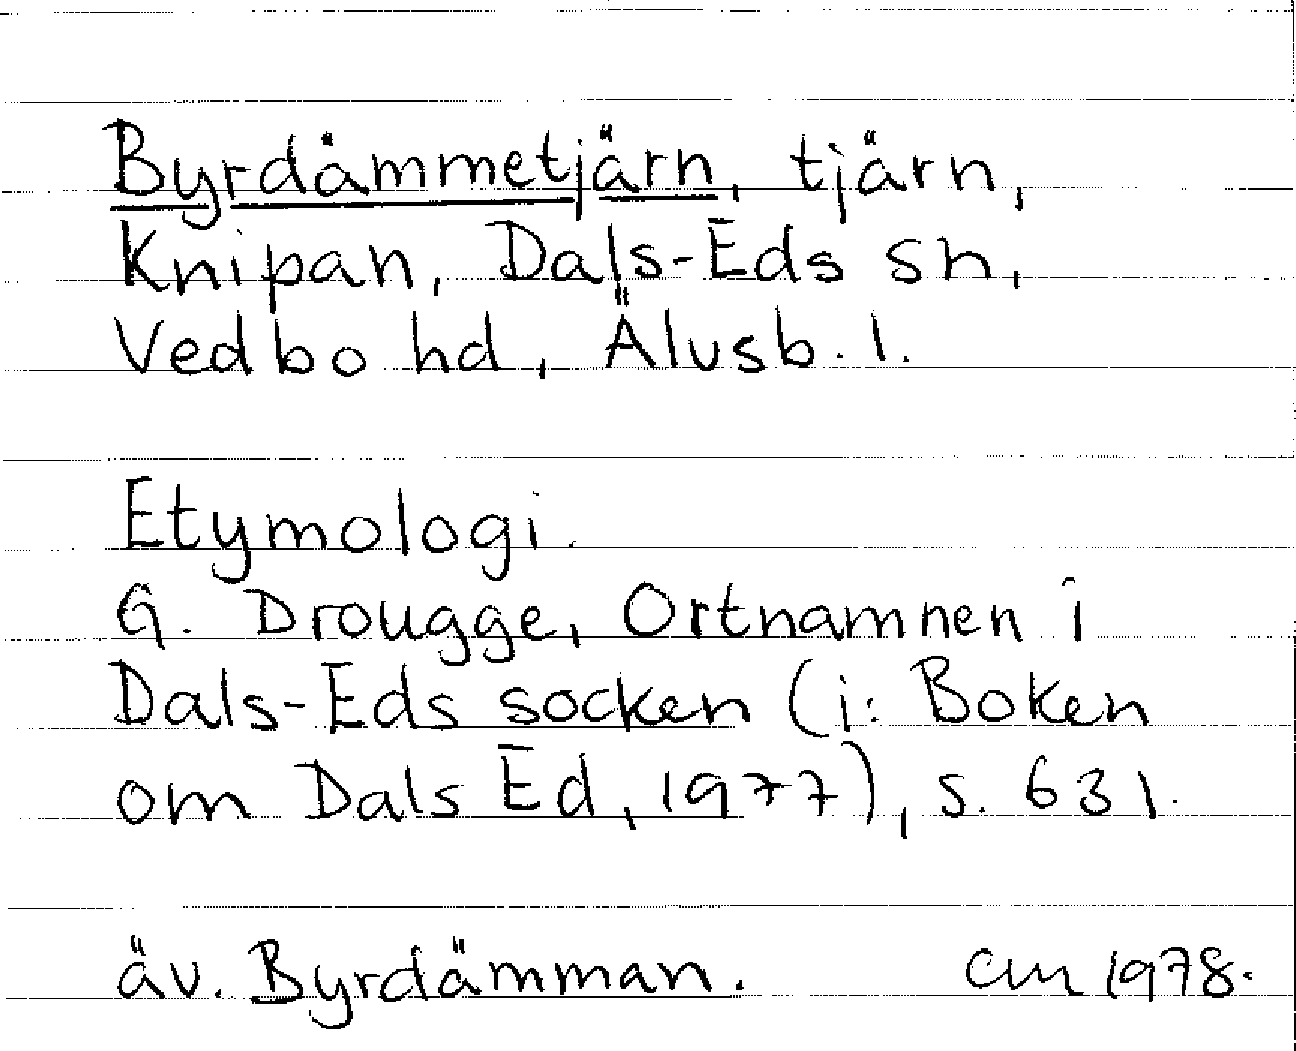 Byrdämmetjärn, tjärn,
Knipan, Dals-Eds sn,
Vedbo hd, Älvsb. l.
Etymologi.
G. Drougge, Ortnamnen i
Dals-Eds socken (i: Boken
om Dals Ed, 1977), s. 631.
äv. Byrdämman. CM 1978.